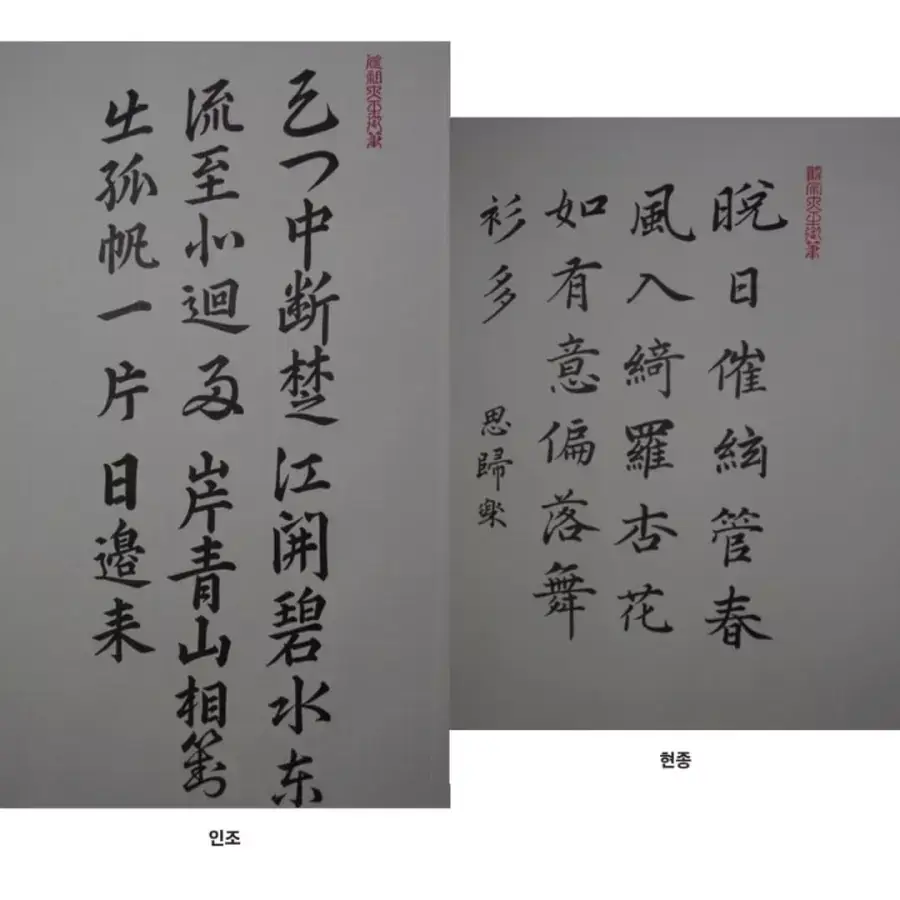 天门中断楚江開碧水东
流至北迴两岸青山相對
出孤帆一片日邊来
인조
晩日催絃管春
風入綺羅杏花
如有意偏落舞
衫多
思歸樂
현종